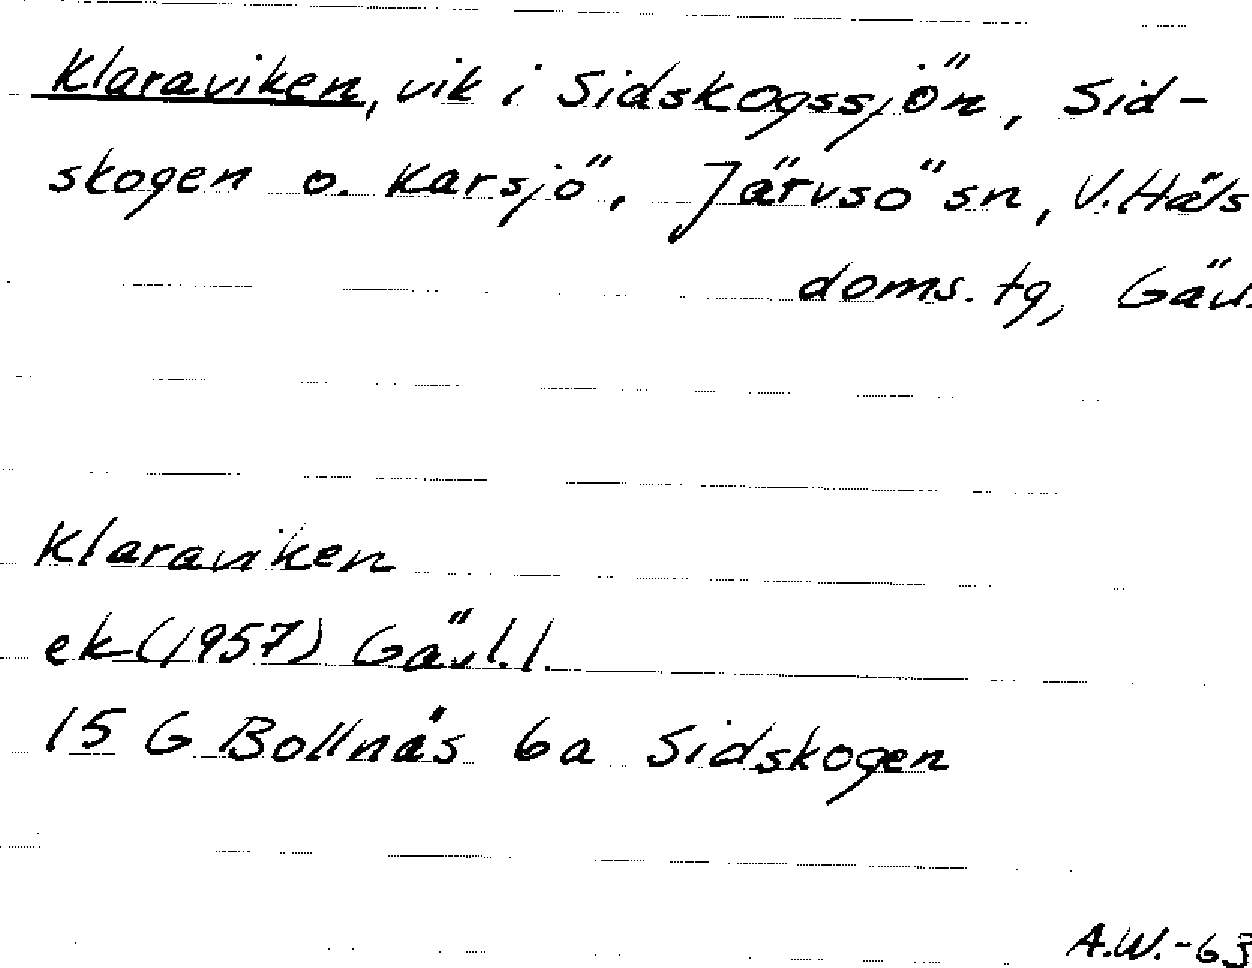 Klaraviken, vik i Sidskogssjön, Sid-
skogen o. Karsjö, Järvsö sn, V. Häls
doms. tg, Gäv.
Klaraviken
ek (1957) Gävl. l.
15 G Bollnäs 6a Sidskogen
A.W. -63